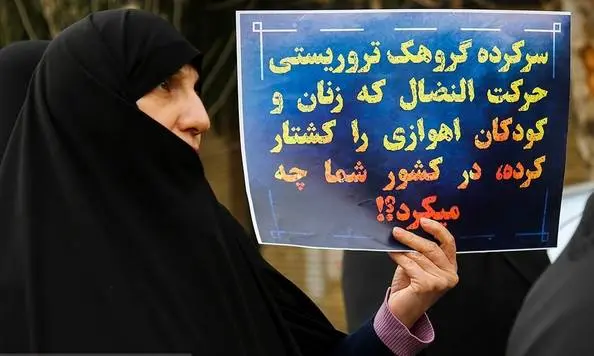 سرکرده گروهک تروریستی
حرکت النضال که زنان و
کودکان اهوازی را کشتار
کرده، در کشور شما چه
میکرد؟!